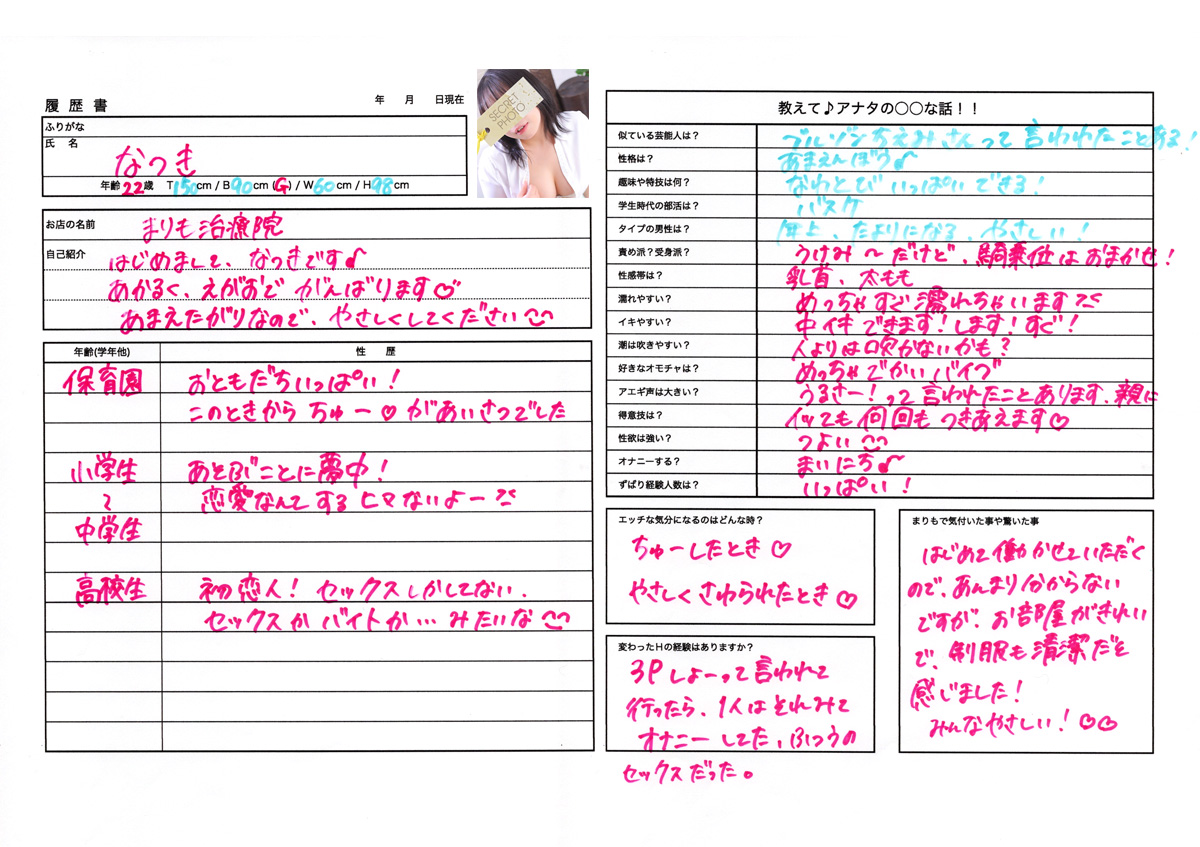 履 歴 書
年　月　日現在
SECRET PHOTO
ふりがな
氏　名
なつき
年齢 22歳 T150cm / B90cm (G) / W60cm / H98cm
お店の名前 まりも治療院
自己紹介 はじめまして、なつきです♪
あかるく、えがおで がんばります♡
あまえたがりなので、やさしくしてください
年齢(学年他) 性　歴
教えて♪アナタの○○な話！！
似ている芸能人は？ ブルゾンちえみさんって 言われたことある！
性格は？ あまえんぼう♪
趣味や特技は何？ なわとび いっぱいできる！
学生時代の部活は？ バスケ
タイプの男性は？ 年上、たよりになる、やさしい！
責め派？受身派？ うけみ〜だけど、騎乗位はおまかせ！
性感帯は？ 乳首、太もも
濡れやすい？ めっちゃすぐ濡れちゃいます
イキやすい？ 中イキできます！します！すぐ！
潮は吹きやすい？ 人よりは吹かないかも？
好きなオモチャは？ めっちゃでかいバイブ
アエギ声は大きい？ うるさー！って言われたことあります、親に
得意技は？ イッても何回もつきあえます♡
性欲は強い？ つよい
オナニーする？ まいにち♪
ずばり経験人数は？ いっぱい！
エッチな気分になるのはどんな時？
ちゅーしたとき♡
やさしくさわられたとき♡
変わったHの経験はありますか？
3Pしよーって言われて
行ったら、1人はそれみて
オナニーしてた、ふつうの
セックスだった。
まりもで気付いた事や驚いた事
はじめて働かせていただく
ので、あんまり分からない
ですが、お部屋がきれい
で、制服も清潔だと
感じました！
みんなやさしい！♡♡